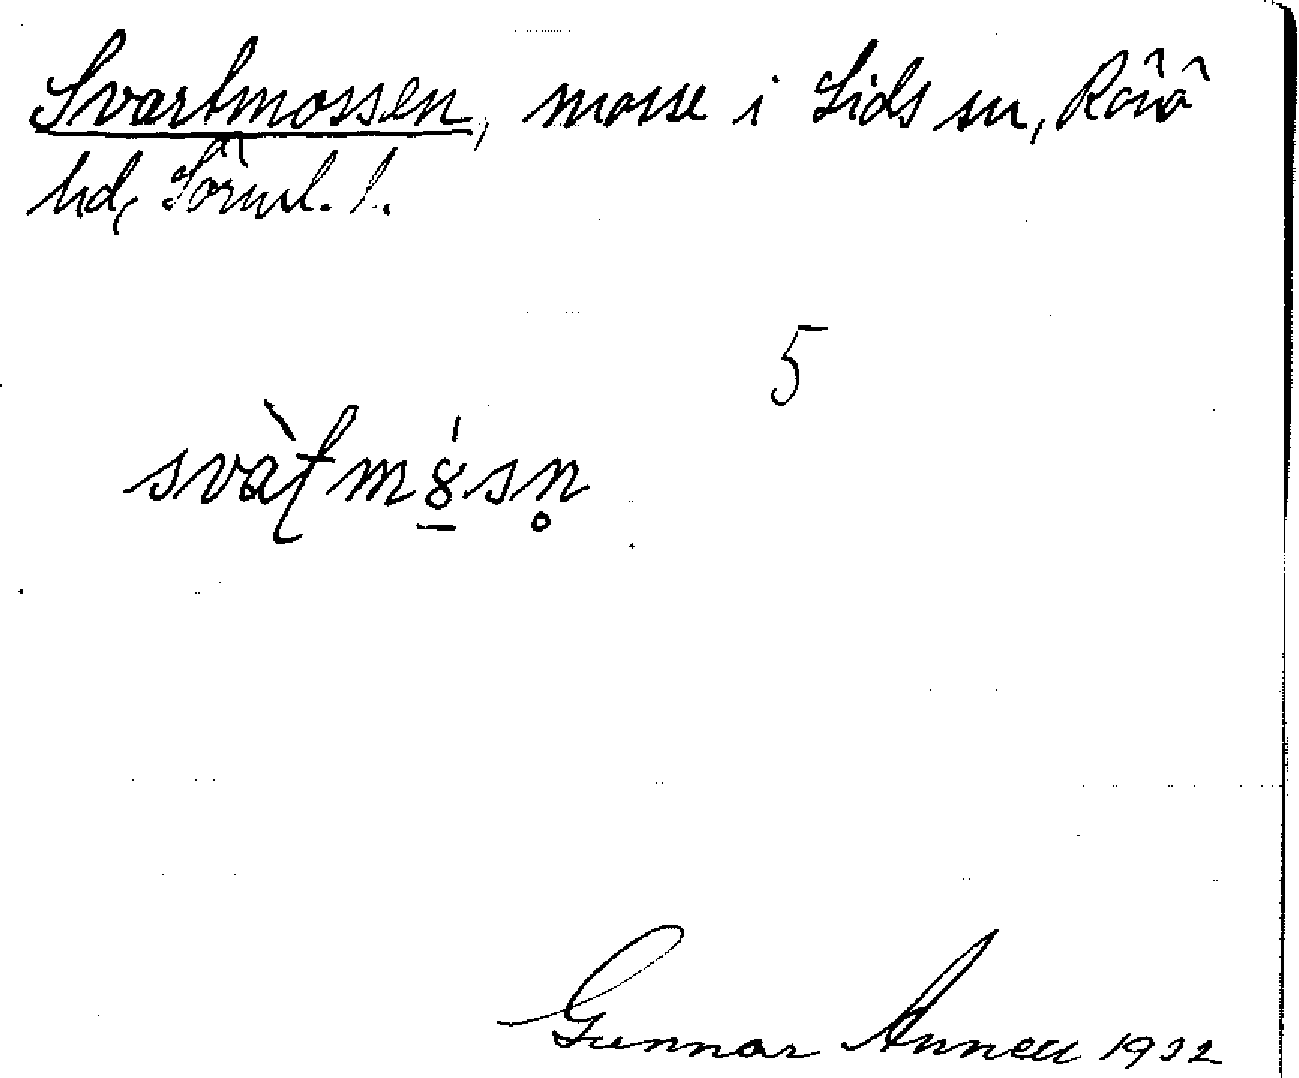 Svartmossen, mosse i Lids sn, Rönö
hd, Sörml. l.
5
svàṭmó̱sn̥
Gunnar Annell 1932